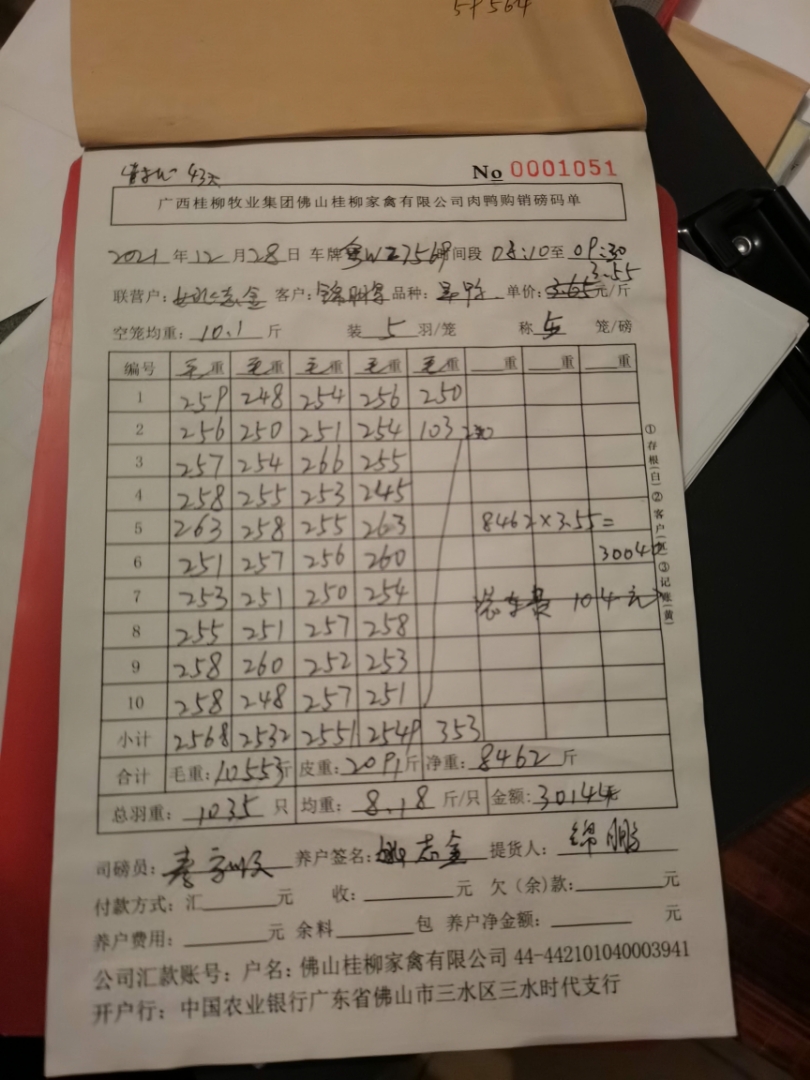 5+564
43天
No 0001051
广西桂柳牧业集团佛山桂柳家禽有限公司肉鸭购销磅码单
2021 年 12 月 28 日 车牌 粤W 7568 时间段 03:10 至 09:30
3.55
联营户: 客户: 品种: 单价: 3.65 元/斤
空笼均重: 10.1 斤 装 5 羽/笼 称 5 笼/磅
编号 毛重 毛重 毛重 毛重 毛重 重 重 重
1 259 248 254 256 250
2 256 250 251 254 103
3 257 254 266 255
4 258 255 253 245
5 263 258 255 263 8462×3.55=
6 251 257 256 260 30040
7 253 251 250 254 装车费 104元
8 255 251 257 258
9 258 260 252 253
10 258 248 257 251
小计 2568 2532 2551 2549 353
合计 毛重: 10553斤 皮重: 2091斤 净重: 8462 斤
总羽重: 1035 只 均重: 8.18 斤/只 金额: 30144
①存根(白)②客户(红)③记账(黄)
司磅员: 养户签名: 姚志金 提货人: 锦鹏
付款方式: 汇 元 收: 元 欠(余)款: 元
养户费用: 元 余料 包 养户净金额: 元
公司汇款账号: 户名: 佛山桂柳家禽有限公司 44-442101040003941
开户行: 中国农业银行广东省佛山市三水区三水时代支行